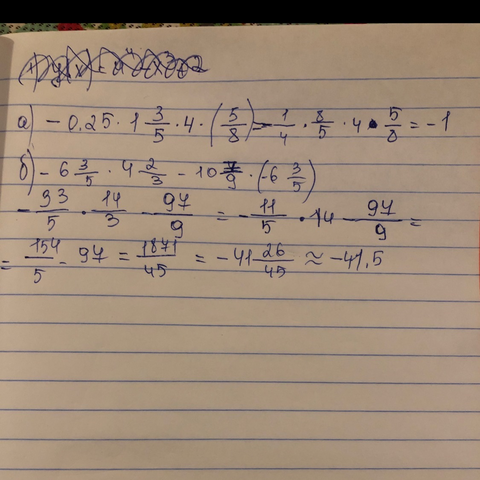 а) - 0.25 · 1 3/5 · 4 · (5/8) = - 1/4 · 8/5 · 4 · 5/8 = -1
б) - 6 3/5 · 4 2/3 - 10 7/9 · (-6 3/5)
- 33/5 · 14/3 - 97/9 = - 11/5 · 14 - 97/9 =
= 154/5 - 97 = 1871/45 = -41 26/45 ≈ -41,5